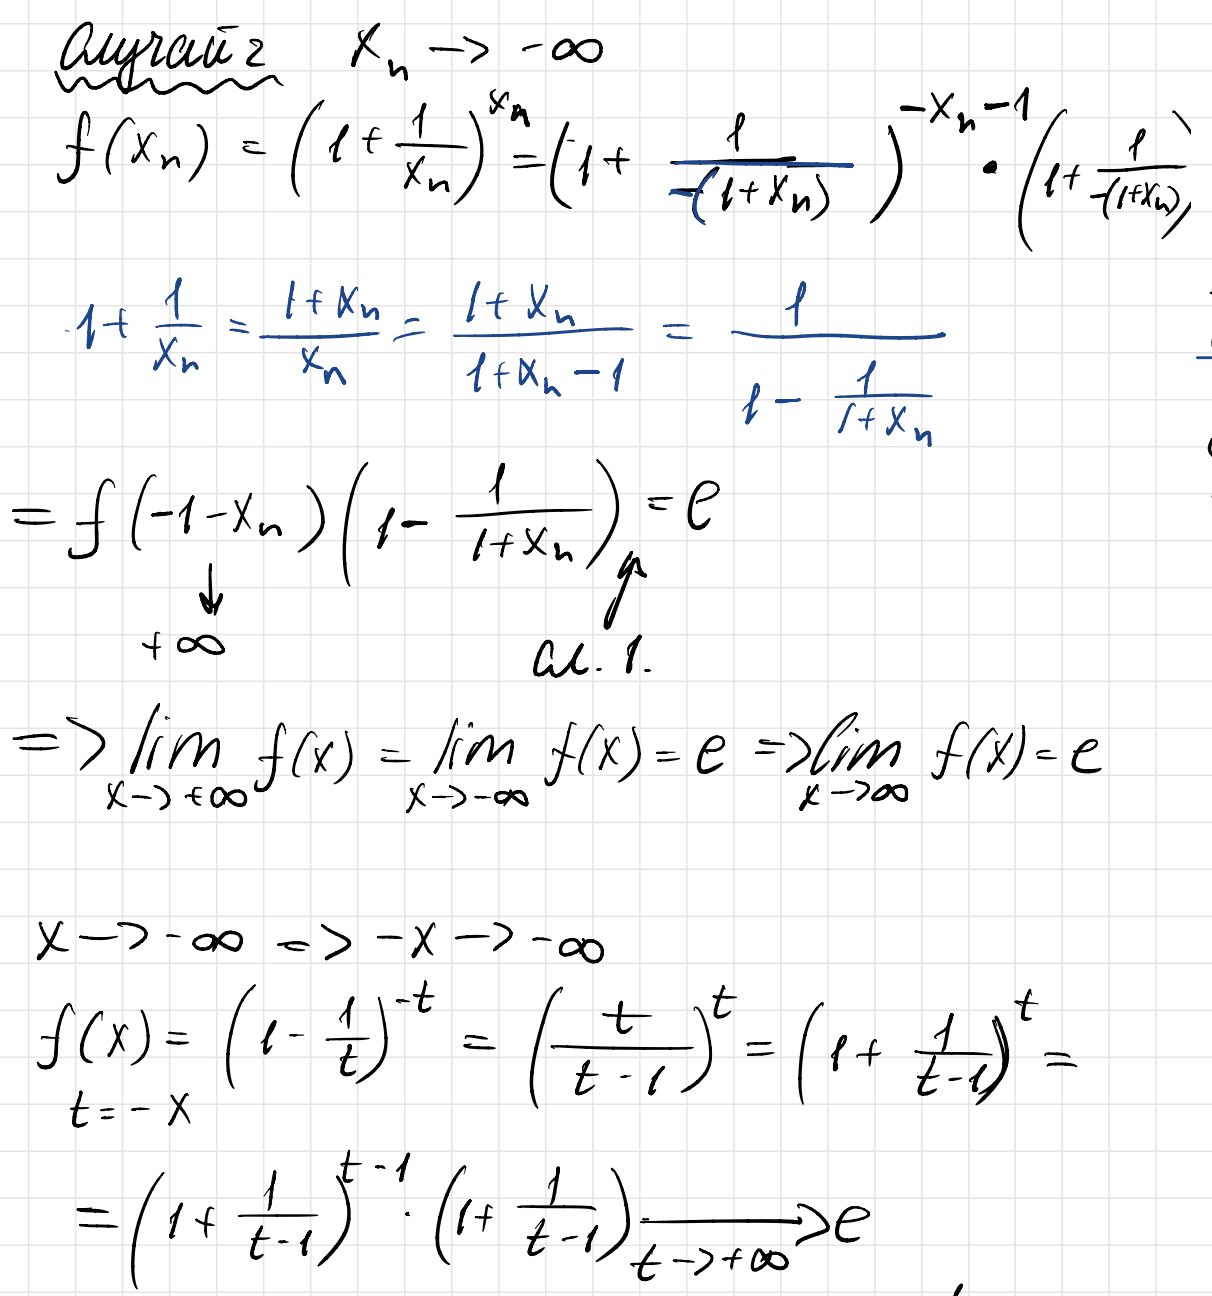 Случай 2 xₙ -> -∞
f(xₙ) = (1 + 1/xₙ)^xₙ = (1 + 1/(-(1+xₙ)))^(-xₙ-1) · (1 + 1/(-(1+xₙ)))
1 + 1/xₙ = (1+xₙ)/xₙ = (1+xₙ)/(1+xₙ-1) = 1/(1 - 1/(1+xₙ))
= f(-1-xₙ)(1 - 1/(1+xₙ)) = e
↓
+∞ сл. 1.
=> lim x->+∞ f(x) = lim x->-∞ f(x) = e => lim x->∞ f(x) = e
x -> -∞ => -x -> -∞
f(x) = (1 - 1/t)^(-t) = (t/(t-1))^t = (1 + 1/(t-1))^t =
t = -x
= (1 + 1/(t-1))^(t-1) · (1 + 1/(t-1)) -> e t->+∞